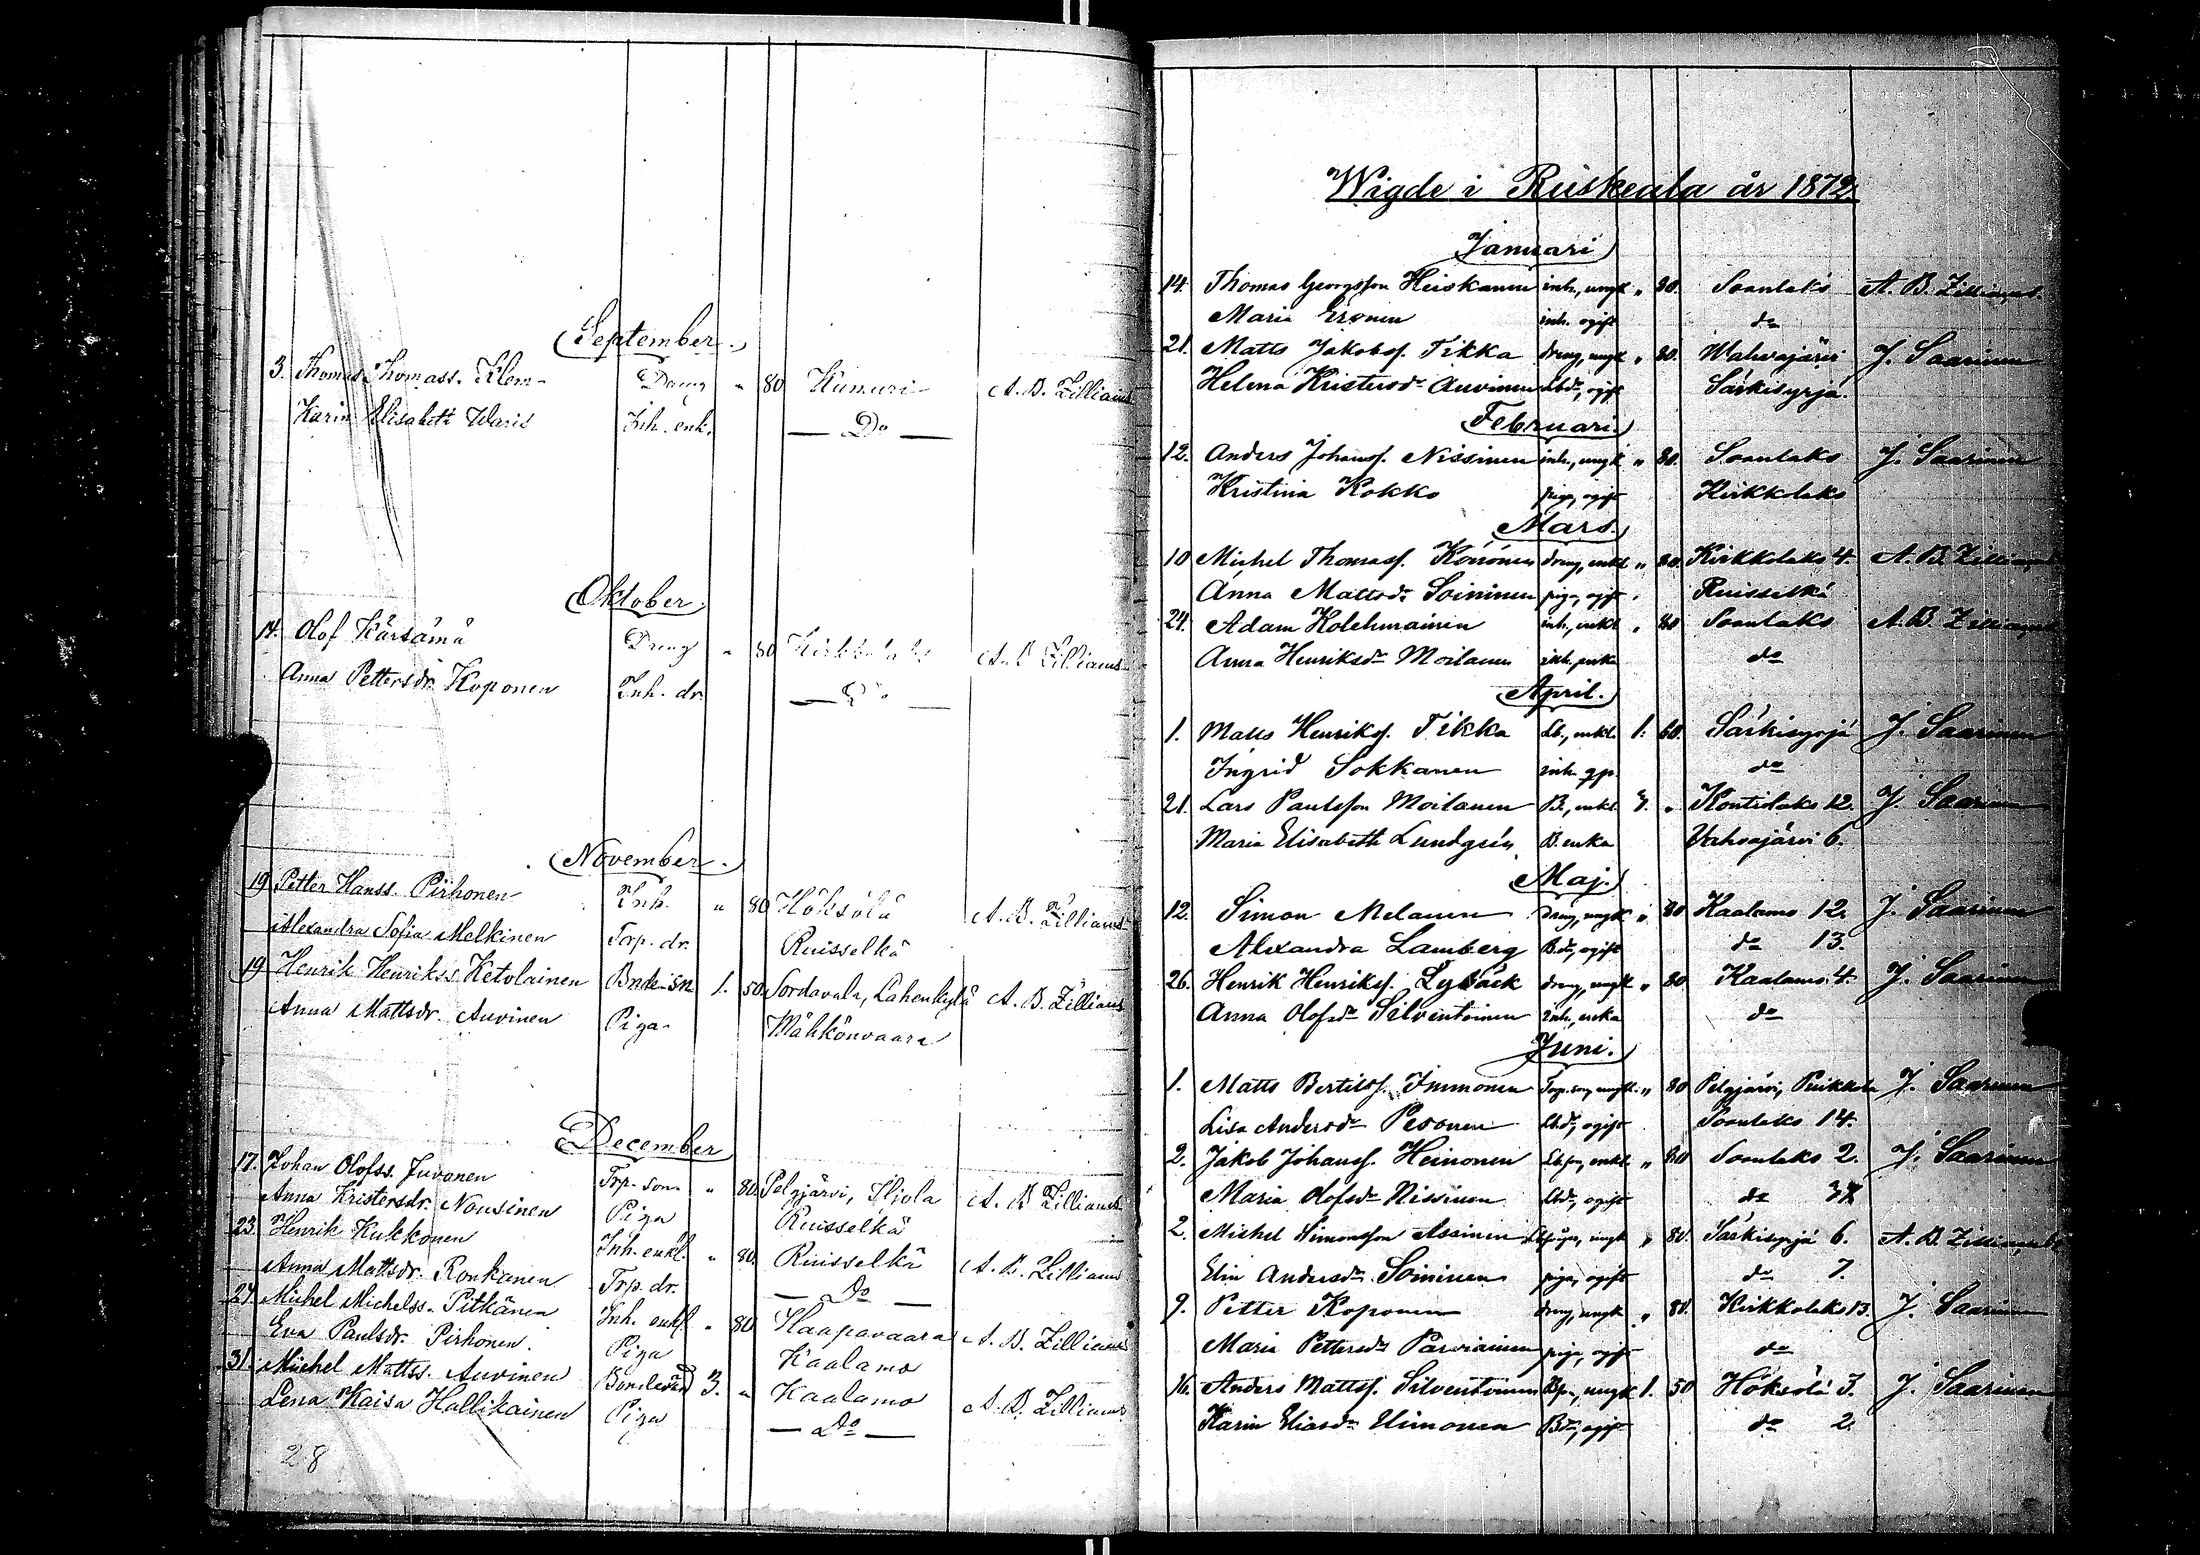 September.
3. Thomas Thomass. Klem- Dreng " 80 Kumuri A. B. Zilliacus
Karin Elisabeth Waris Inh. enk. — Do —
Oktober
14. Olof Kärsämä Dreng " 80 Kirkkolaks A. B. Zilliacus
Anna Pettersdr. Koponen Inh. dr. — Do —
November.
19 Petter Hanss. Pirhonen Inh. " 80 Höksölä A. B. Zilliacus
Alexandra Sofia Melkinen Torp. dr. Ruisselkä
19 Henrik Henrikss Ketolainen Bnde-sn 1. 50. Sordavala, Lahenkylä A. B. Zilliacus
Anna Mattsdr. Auvinen Piga Mähkönvaara
December
17. Johan Olofss. Juvonen Trp. son " 80. Pelgjärvi, Iljola A. B. Zilliacus
Anna Kristersdr. Nousinen Piga Ruisselkä
23. Henrik Kukkonen Inh. enkl. " 80. Ruisselkä A. B. Zilliacus
Anna Mattsdr. Ronkanen Trp. dr. — Do —
27. Michel Michelss. Pitkänen Inh. enkl " 80 Haapavaara A. B. Zilliacus
Eva Paulsdr. Pirhonen. Piga Kaalamo
31. Michel Mattss. Auvinen 3. " Kaalamo A. B. Zilliacus
Lena Kaisa Hallikainen Piga — Do —
28
Wigde i Ruskeala år 1872.
Januari
14. Thomas Georgsson Heiskanen inh., ungk " 80. Soanlaks A. B. Zilliacus
Maria Eronen inh. ogift do
21. Matts Jakobss. Tikka dreng, ungk " 80. Wahvajärvi J. Saarinen
Helena Kristersdr Auvinen Lbdr, ogift Särkisyrjä.
Februari.
12. Anders Johanss. Nissinen inh., ungk " 80. Soanlaks J. Saarinen
Kristina Kokko piga, ogift Kirkkolaks
Mars.
10 Michel Thomass. Kononen dreng, enkl. " 80. Kirkkolaks 4. A. B. Zilliacus
Anna Mattsdr Soininen piga, ogift Ruisselkä
24. Adam Kolehmainen inh., enkl. " 80 Soanlaks A. B. Zilliacus
Anna Henriksdr Moilanen inh. enka do
April.
1. Matts Henrikss. Tikka Lb., enkl. 1. 60. Särkisyrjä J. Saarinen
Ingrid Sokkanen inh. do
21. Lars Paulsson Moilanen B., enkl. 3. " Kontiolaks 12. J. Saarinen
Maria Elisabeth Lundgrén B. enka Vahvajärvi 6.
Maj.
12. Simon Melanen dreng, ungk " 80 Kaalamo 12. J. Saarinen
Alexandra Lamberg Bdr, ogift do 13.
26. Henrik Henrikss. Lybäck dreng, ungk " 80 Kaalamo 4. J. Saarinen
Anna Olofsdr Silventoinen inh., enka do
Juni.
1. Matts Bertilss. Immonen Torp. son, ungk. " 80 Pelgjärvi, Puikkola J. Saarinen
Lisa Andersdr Pesonen Lbdr, ogift Soanlaks 14.
2. Jakob Johanss. Heinonen enkl. " 80 Soanlaks 2. J. Saarinen
Maria Olofsdr Nissinen Lbdr, ogift do
2. Michel Simonsson Assinen ungk " 80. Särkisyrjä 6. A. B. Zilliacus
Elin Andersdr Soininen piga, ogift do 7.
9. Petter Koponen dreng, ungk " 80. Kirkkolaks 13. J. Saarinen
Maria Pettersdr Parviainen piga, ogift do
16. Anders Mattss. Silventoinen ungk 1. 50 Höksölä 3. J. Saarinen
Karin Eliasdr Uimonen Bdr, ogift do 2.